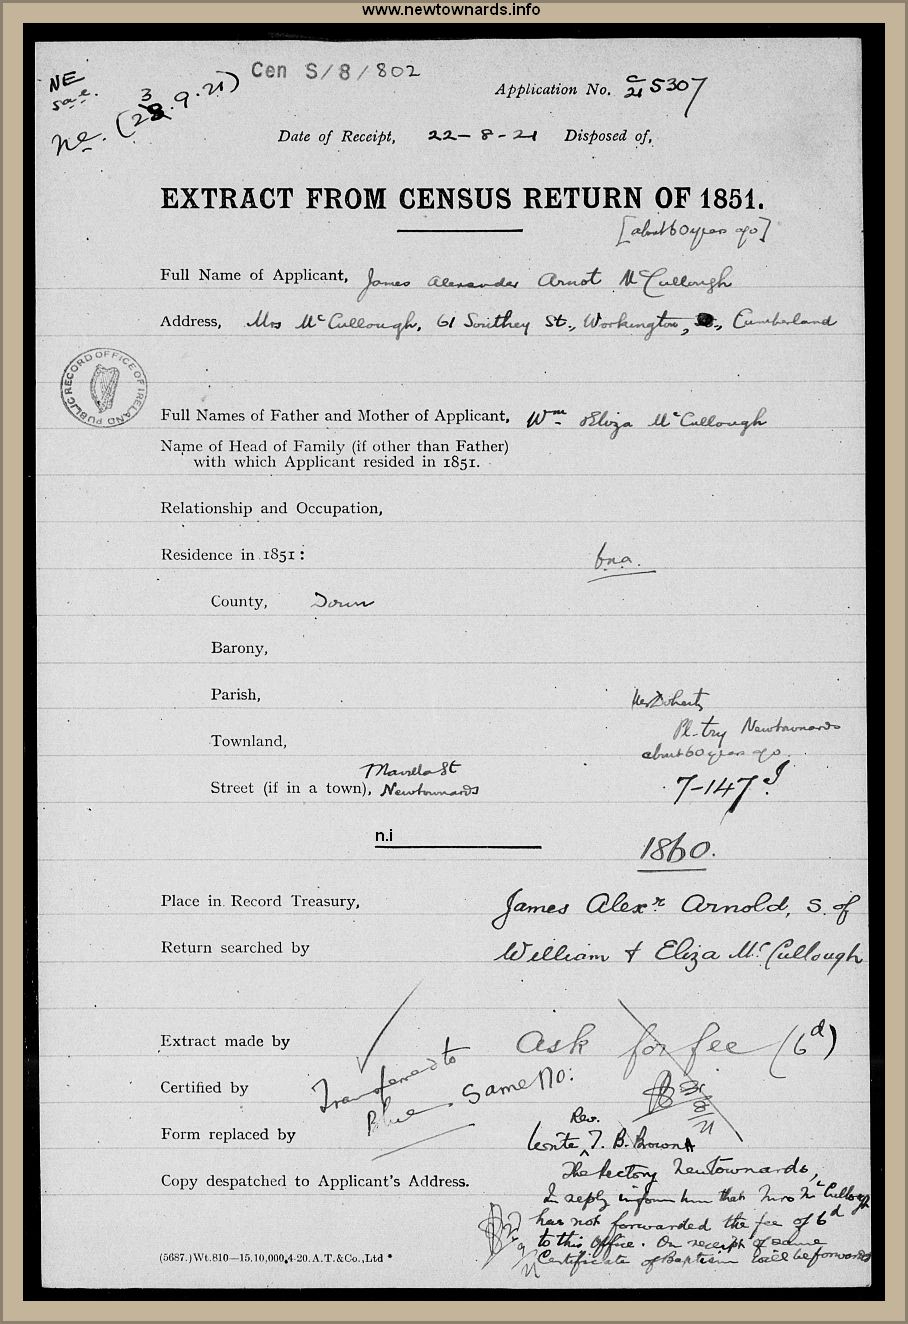 www.newtownards.info
Cen S/8/802
NE
s.a.e.
ne. (23.9.21)
Application No. C/21 5307
Date of Receipt, 22-8-21 Disposed of,
EXTRACT FROM CENSUS RETURN OF 1851.
[about 60 years ago]
Full Name of Applicant, James Alexander Arnot McCullough
Address, Mrs McCullough, 61 Southey St., Workington, Cumberland
PUBLIC RECORD OFFICE OF IRELAND
Full Names of Father and Mother of Applicant, Wm & Eliza McCullough
Name of Head of Family (if other than Father)
with which Applicant resided in 1851.
Relationship and Occupation,
Residence in 1851:
County, Down
Barony,
Parish,
Townland,
Pl-try Newtownards
about 60 years ago.
Street (if in a town), Movilla St
Newtownards
7-147
n.i
1860.
Place in Record Treasury,
James Alexr Arnold, s. of
Return searched by
William & Eliza McCullough
Extract made by
Ask for fee (6d)
Certified by
Transferred to
Blue Same No:
Form replaced by
Write Rev. T. B. Brown
The Rectory Newtownards,
Copy despatched to Applicant's Address.
In reply inform him that Mrs McCullough
has not forwarded the fee of 6d
to this Office. On receipt of same
Certificate of Baptism will be forwarded
(5687.)Wt.810—15.10,000.4-20.A.T.&Co.,Ltd